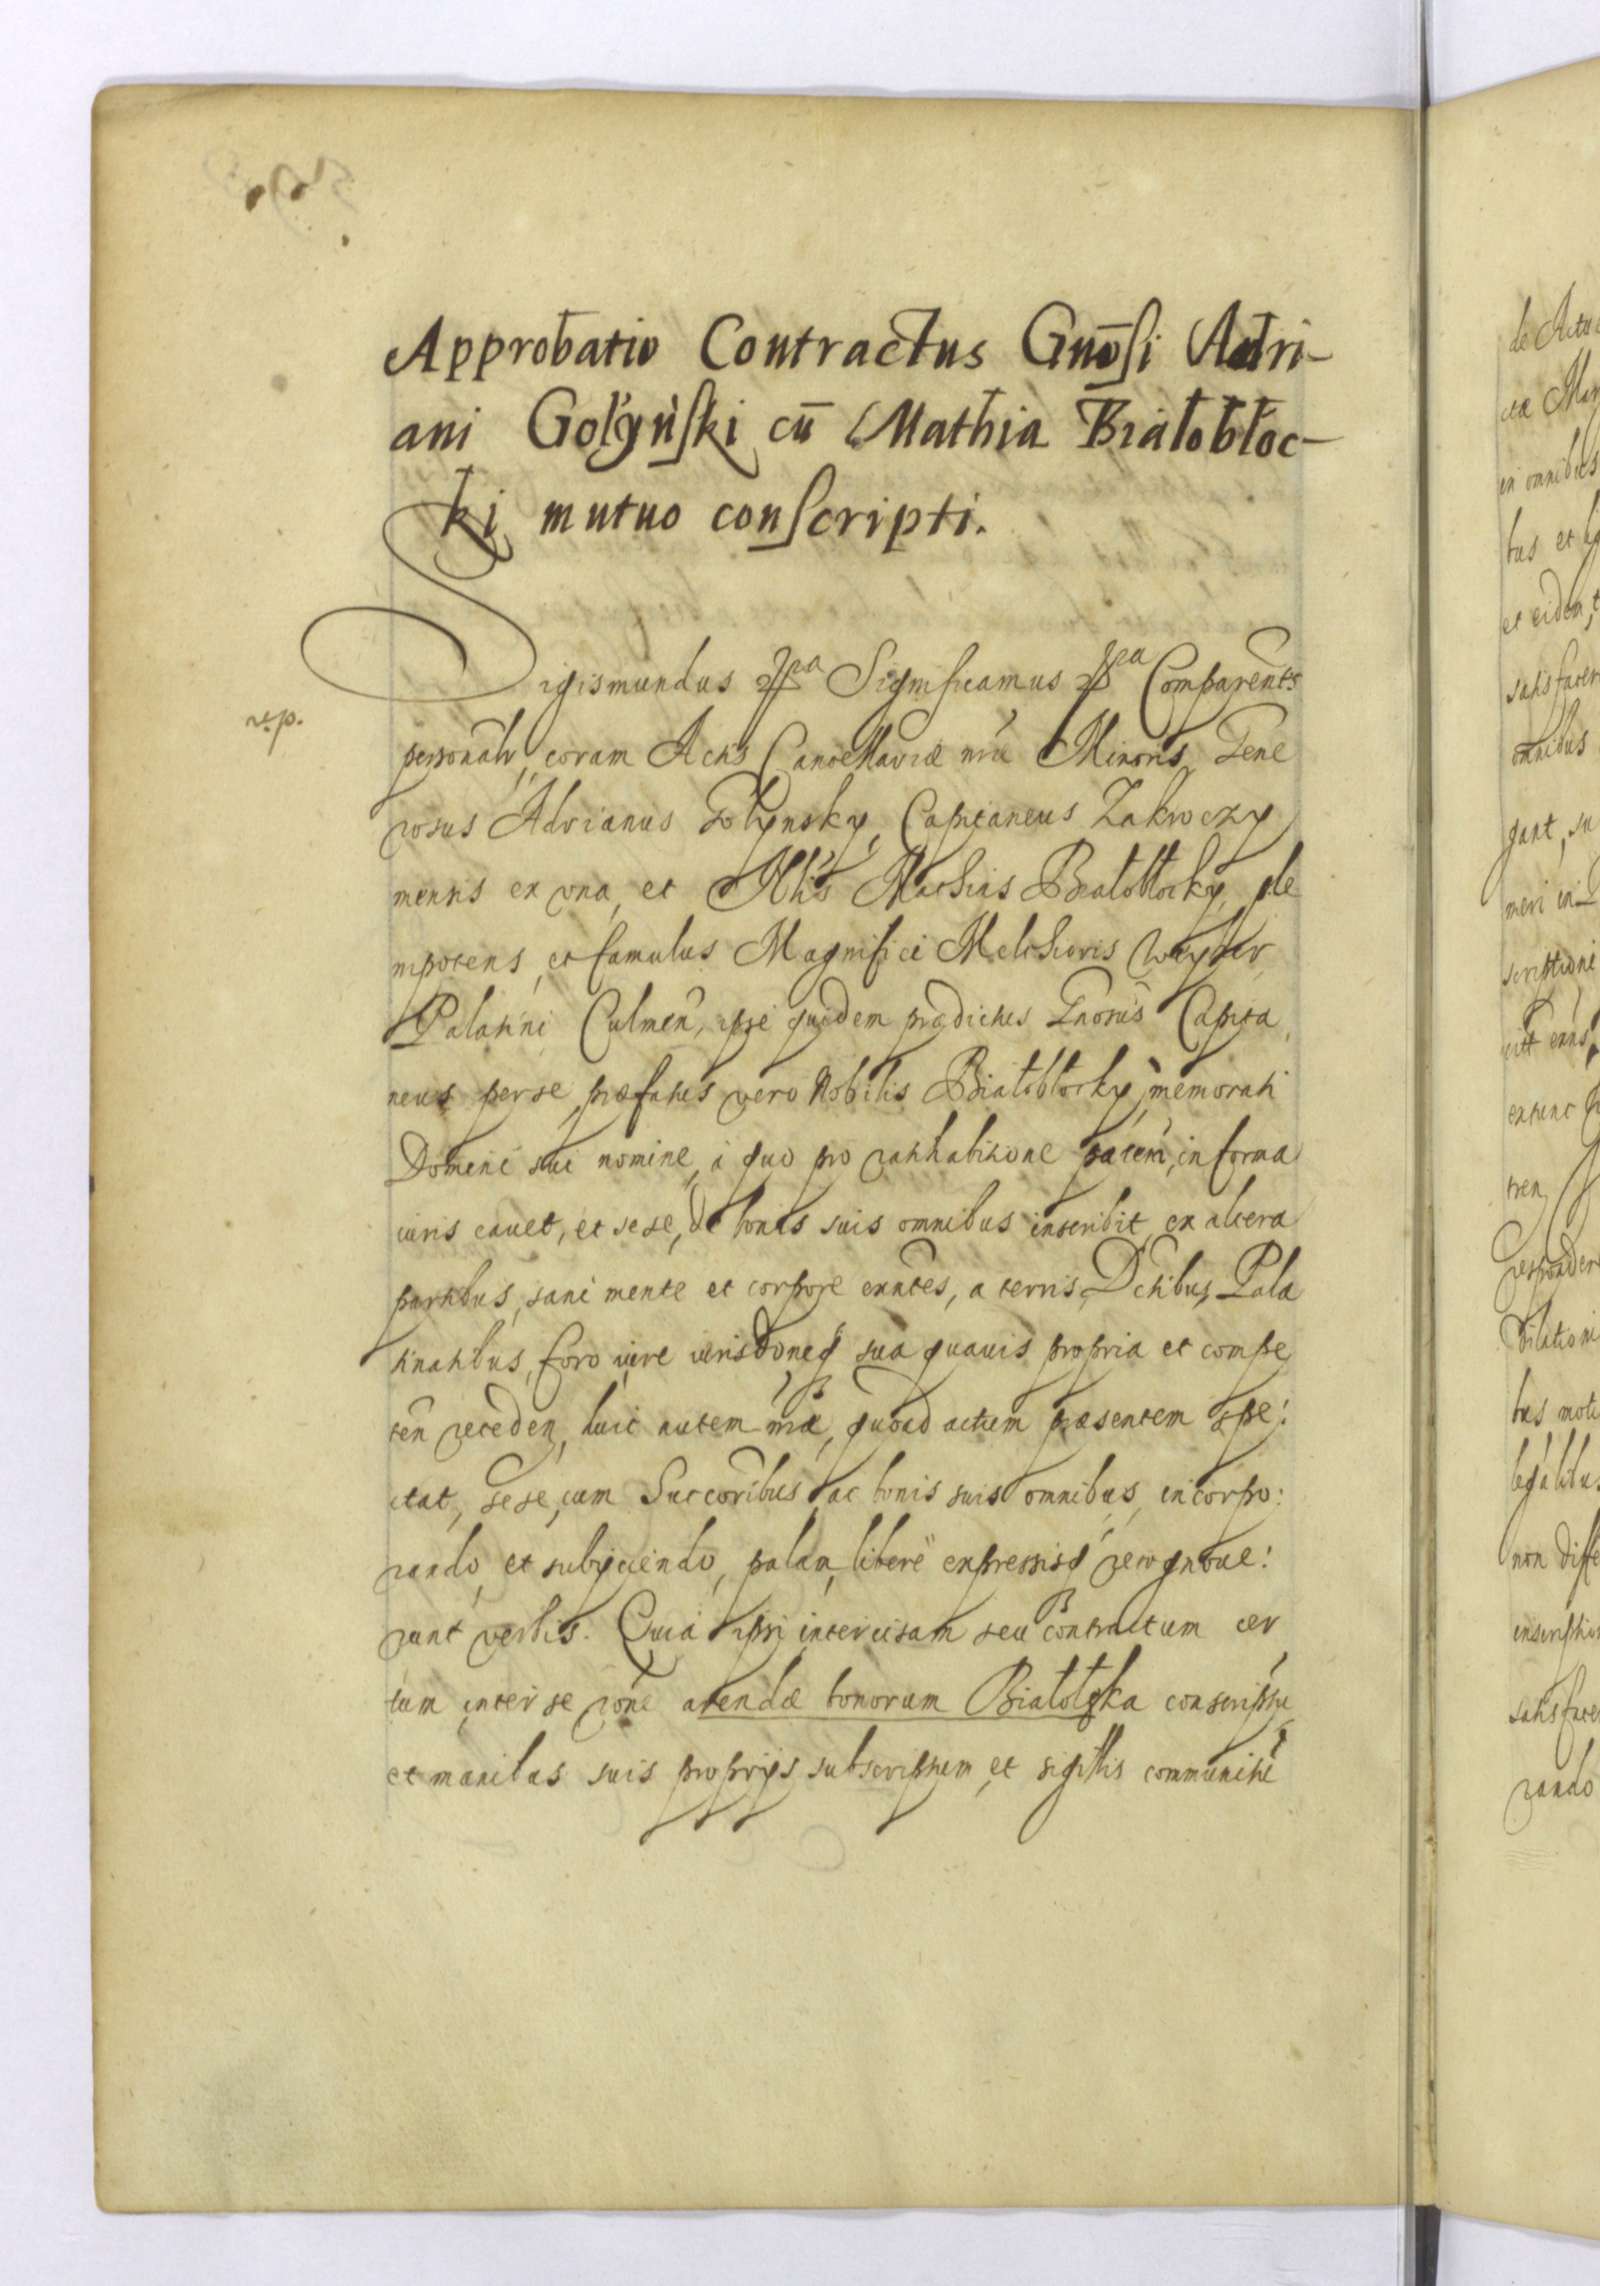 Approbatio Contractus Gnōsi Adri-
ani Golÿnski cū Mathia Białobłoc-
ki mutuo conscripti.
Sigismundus Significamus Comparents
rep.
personalr, coram Actis Cancellariæ nræ Minoris, Gene
rosus Adrianus Golynsky, Capitaneus Zakroczy
mensis ex una, et Nblis Mathias Białobłocky, ple
nipotens, et famulus Magnifici Melchioris Wayher
Palatini Culmen, ipse quidem prædictus Gnosus Capita
neus per se, præfatus vero Nobilis Białobłocky, memorati
Domini sui nomine, à quo pro ratihabitione in forma
iuris cauet, et sese, de bonis suis omnibus inscribit, ex altera
partibus, sani mente et corpore exntes, a terris, Dctibus, Pala
tinatibus, foro iure iurisdoneq sua quauis propria et compe
ten receden, huic autem nræ, quoad actum præsentem spe:
ctat, sese, cum Succoribus ac bonis suis omnibus, incorpo:
rando, et subijciendo, palam, libere expressisq recognoue:
runt verbis. Quia ipsi intercisam seu contractum cer
tum inter se rone arendæ bonorum Białolęka conscriptu
et manibus suis proprijs subscriptum, et sigillis communitu
de Actu
ctæ
in omnibus
tus et
et eidem
satisfacer
omnibus
gant, su
meri in
scriptioni
extunc
ten
respondere
Dilationi
bus moti
legalibus
non diffe
inscriptio
satisfacer
rando